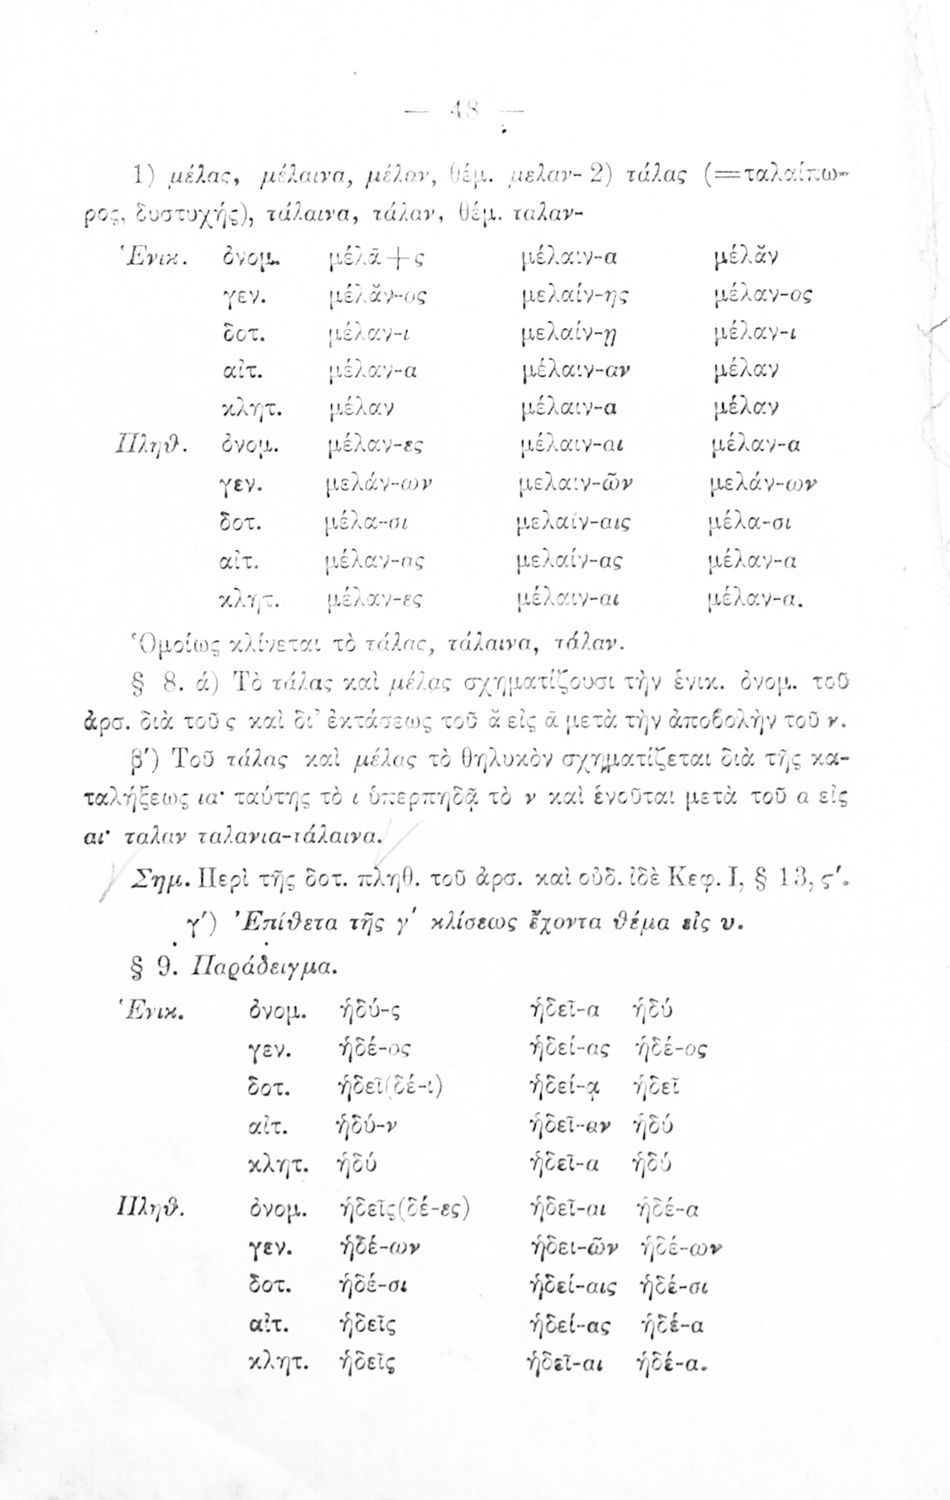 — 48 —
1) μέλας, μέλαινα, μέλαν, θέμ. μελαν- 2) τάλας (=ταλαίπω-
ρος, δυστυχής), τάλαινα, τάλαν, θέμ. ταλαν-
Ἑνικ. ὀνομ. μέλᾱ+ς μέλαιν-α μέλᾰν
γεν. μέλᾰν-ος μελαίν-ης μέλαν-ος
δοτ. μέλαν-ι μελαίν-ῃ μέλαν-ι
αἰτ. μέλαν-α μέλαιν-αν μέλαν
κλητ. μέλαν μέλαιν-α μέλαν
Πληθ. ὀνομ. μέλαν-ες μέλαιν-αι μέλαν-α
γεν. μελάν-ων μελαιν-ῶν μελάν-ων
δοτ. μέλα-σι μελαίν-αις μέλα-σι
αἰτ. μέλαν-ας μελαίν-ας μέλαν-α
κλητ. μέλαν-ες μέλαιν-αι μέλαν-α.
Ὁμοίως κλίνεται τὸ τάλας, τάλαινα, τάλαν.
§ 8. ά) Τὸ τάλας καὶ μέλας σχηματίζουσι τὴν ἑνικ. ὀνομ. τοῦ
ἀρσ. διὰ τοῦ ς καὶ δι’ ἐκτάσεως τοῦ ᾰ εἰς ᾱ μετὰ τὴν ἀποβολὴν τοῦ ν.
β′) Τοῦ τάλας καὶ μέλας τὸ θηλυκὸν σχηματίζεται διὰ τῆς κα-
ταλήξεως ια· ταύτης τὸ ι ὑπερπηδᾷ τὸ ν καὶ ἑνοῦται μετὰ τοῦ α εἰς
αι· ταλαν ταλανια-τάλαινα.
Σημ. Περὶ τῆς δοτ. πληθ. τοῦ ἀρσ. καὶ οὐδ. ἰδὲ Κεφ. I, § 13, ς′.
γ′) Ἐπίθετα τῆς γ′ κλίσεως ἔχοντα θέμα εἰς υ.
§ 9. Παράδειγμα.
Ἑνικ. ὀνομ. ἡδύ-ς ἡδεῖ-α ἡδύ
γεν. ἡδέ-ος ἡδεί-ας ἡδέ-ος
δοτ. ἡδεῖ(δέ-ι) ἡδεί-ᾳ ἡδεῖ
αἰτ. ἡδύ-ν ἡδεῖ-αν ἡδύ
κλητ. ἡδύ ἡδεῖ-α ἡδύ
Πληθ. ὀνομ. ἡδεῖς(δέ-ες) ἡδεῖ-αι ἡδέ-α
γεν. ἡδέ-ων ἡδει-ῶν ἡδέ-ων
δοτ. ἡδέ-σι ἡδεί-αις ἡδέ-σι
αἰτ. ἡδεῖς ἡδεί-ας ἡδέ-α
κλητ. ἡδεῖς ἡδεῖ-αι ἡδέ-α.